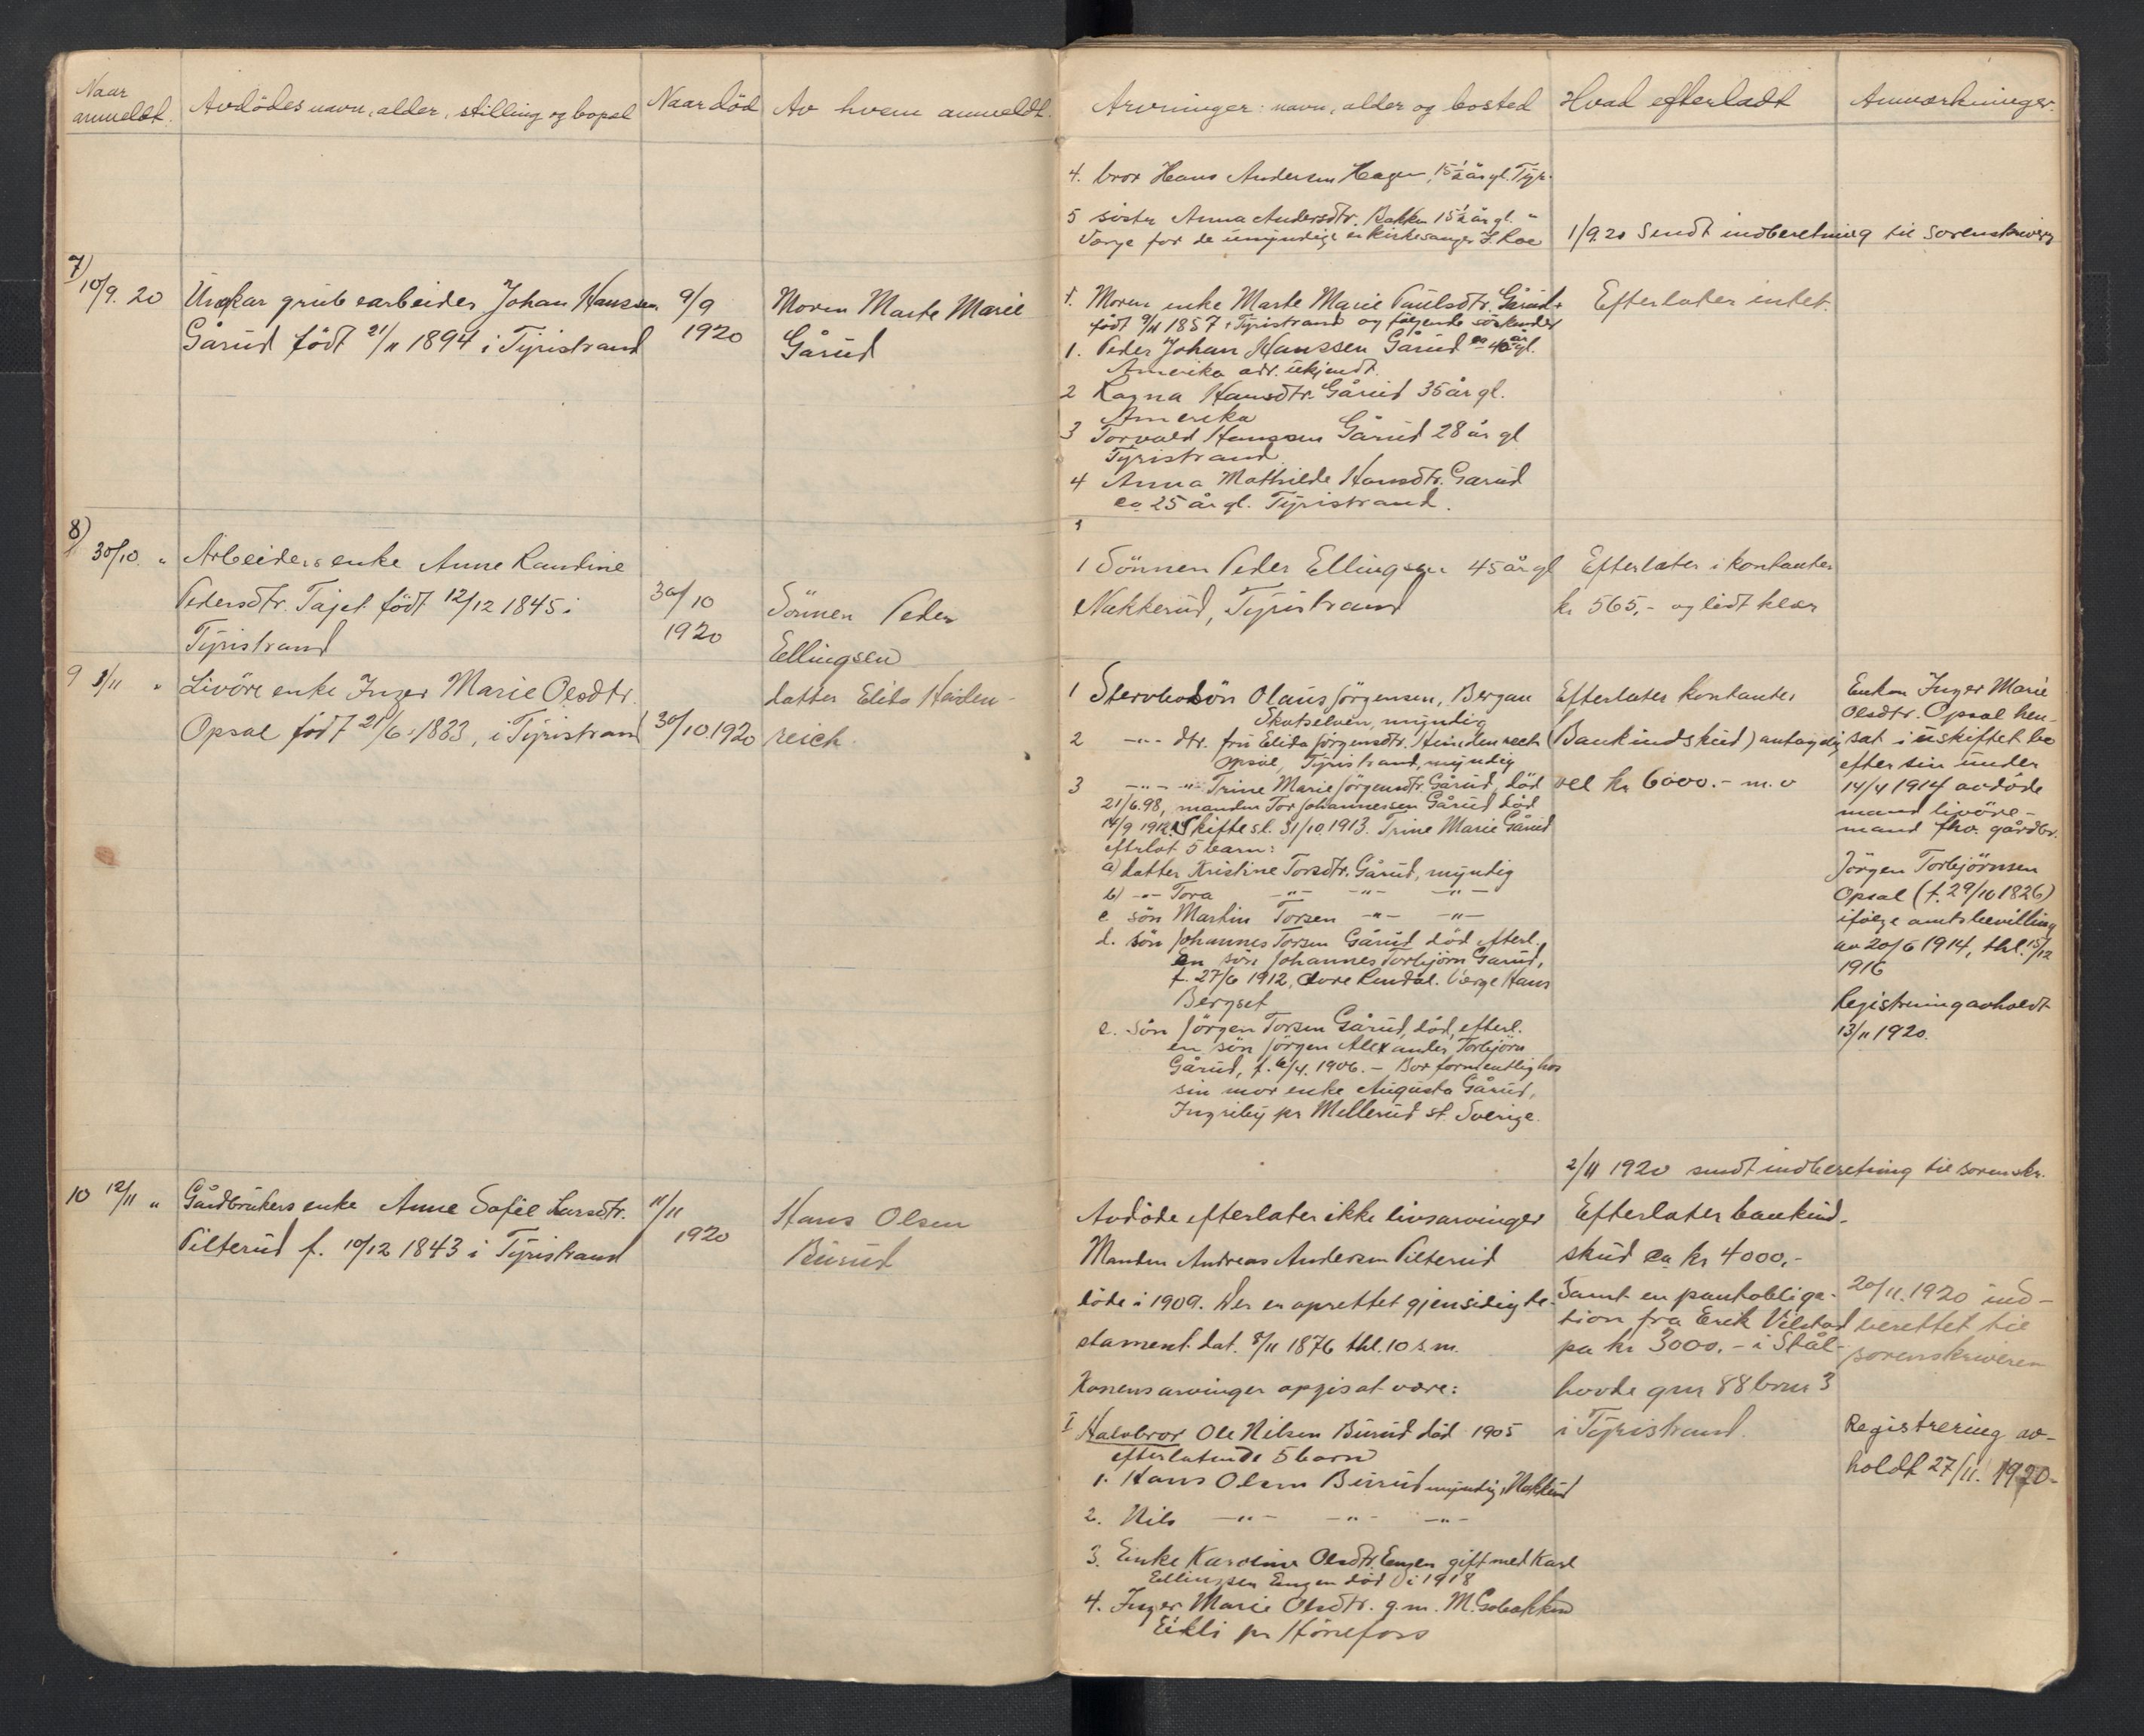 Naar anmeldt.
Avdödes navn, alder, stilling og bopel
Naar död
Av hvem anmeldt.
Arvinger: navn, alder og bosted
Hvad efterladt
Anmærkninger.
4. bror Hans Andersen Hagen, 15½ år gl. Tyr.
5 söster Anna Andersdtr. Bakken 15½ år gl. "
Verge for de umyndige er kirkesanger
1/9.20 Sendt indberetning til sorenskriver
7)
10/9. 20
Ungkar grubearbeider Johan Hanssen
Gårud födt 21/11 1894 i Tyristrand
9/9
1920
Moren Marte Marie
Gårud
1. Moren enke Marte Marie Paulsdtr. Gårud
födt 9/11 1857 i Tyristrand og följende söskender
1. Peder Johan Hanssen Gårud ca 40 år gl.
Amerika adr. ukjendt.
2 Ragna Hansdtr. Gårud 35 år gl.
Amerika
3 Torvald Hanssen Gårud 28 år gl
Tyristrand
4 Anna Mathilde Hansdtr. Garud
ca 25 år gl. Tyristrand.
Efterlater intet.
8)
30/10. "
Arbeiders enke Anne Randine
Pedersdtr. Tajet födt 12/12 1845 i
Tyristrand
30/10
1920
Sönnen Peder
Ellingsen
1 Sönnen Peder Ellingsen 45 år gl
Nakkerud, Tyristrand
Efterlater i kontanter
kr 565,- og lidt klær
9 1/11 "
Livöre enke Inger Marie Olsdtr.
Opsal födt 21/6 1833, i Tyristrand
30/10.1920
datter Elida Heiden-
reich
1 Stervbosön Olaus Jörgensen, Bergan
Skotselven, myndig
2 -"- dtr. fru Elida Jörgensdtr. Heidenreich
Opsal, Tyristrand, myndig
3 -"- -"- Trine Marie Jörgensdtr. Gårud, död
21/6.98, manden Tor Johannessen Gårud död
14/9 1912. Skiftesl. 31/10.1913. Trine Marie Gårud
efterlot 5 barn:
a) datter Kristine Torsdtr. Gårud, myndig
b) -"- Tora -"- -"- -"-
c. sön Martin Torsen -"- -"-
d. sön Johannes Torsen Gårud död efterl.
En sön Johannes Torbjörn Garud,
f. 27/6 1912, Verge Hans
Bergset
e. Sön Jörgen Torsen Gårud, död, efterl.
en sön Jörgen Alexander Torbjörn
Gårud, f. 6/4. 1906. - Bor formentlig hos
sin mor enke Augusta Gårud,
Ingriby pr Mellerud st. Sverige.
Efterlater kontanter
(Bankindskud) antagelig
vel kr 6000.- m.v
Enken Inger Marie
Olsdtr. Opsal hen-
sat i uskiftet bo
efter sin under
14/4 1914 avdöde
mand livöre-
mand fhv. gårdbr.
Jörgen Torbjörnsen
Opsal (f. 29/10 1826)
ifölge amtsbevilling
av 20/6 1914, thl. 15/12
1916
Registrering avholdt
13/11 1920.
2/11 1920 sendt indberetning til sorenskr.
10 12/11 "
Gårdbrukers enke Anne Sofie Larsdtr.
Pilterud f. 10/12 1843 i Tyristrand
11/11
1920
Hans Olsen
Burud
Avdöde efterlater ikke livsarvinger
Manden Andreas Andersen Pilterud
döde i 1909. Der er oprettet gjensidig te-
stament. dat. 8/11 1876 thl. 10 s.m.
Konens arvinger opgis at være:
I Halvbror Ole Nilsen Burud död 1905
efterlatende 5 barn
1. Hans Olsen Burud myndig, Nakkerud
2. Nils -"- -"- -"-
3. Enke Karoline Olsdtr. Engen gift med Karl
Ellingsen Engen död i 1918
4. Inger Marie Olsdtr. g.m. M.
Eikli pr Hönefoss
Efterlater bankind-
skud ca kr 4000,-
Samt en pantobliga-
tion fra Erik Vilstad
på kr 3000.- i Stål-
hovde gnr 88 brnr 3
i Tyristrand.
20/11.1920 ind-
berettet til
sorenskriveren
Registrering av-
holdt 27/11. 1920-